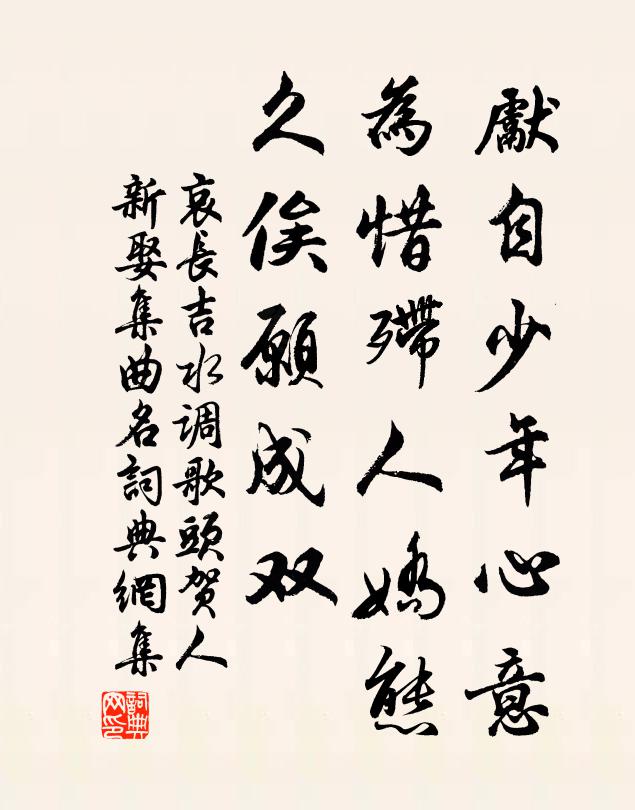 獻自少年心意
為惜殢人嬌態
久俟願成双
袁長吉水调歌頭贺人
新娶集曲名詞典網集
詞典
网印